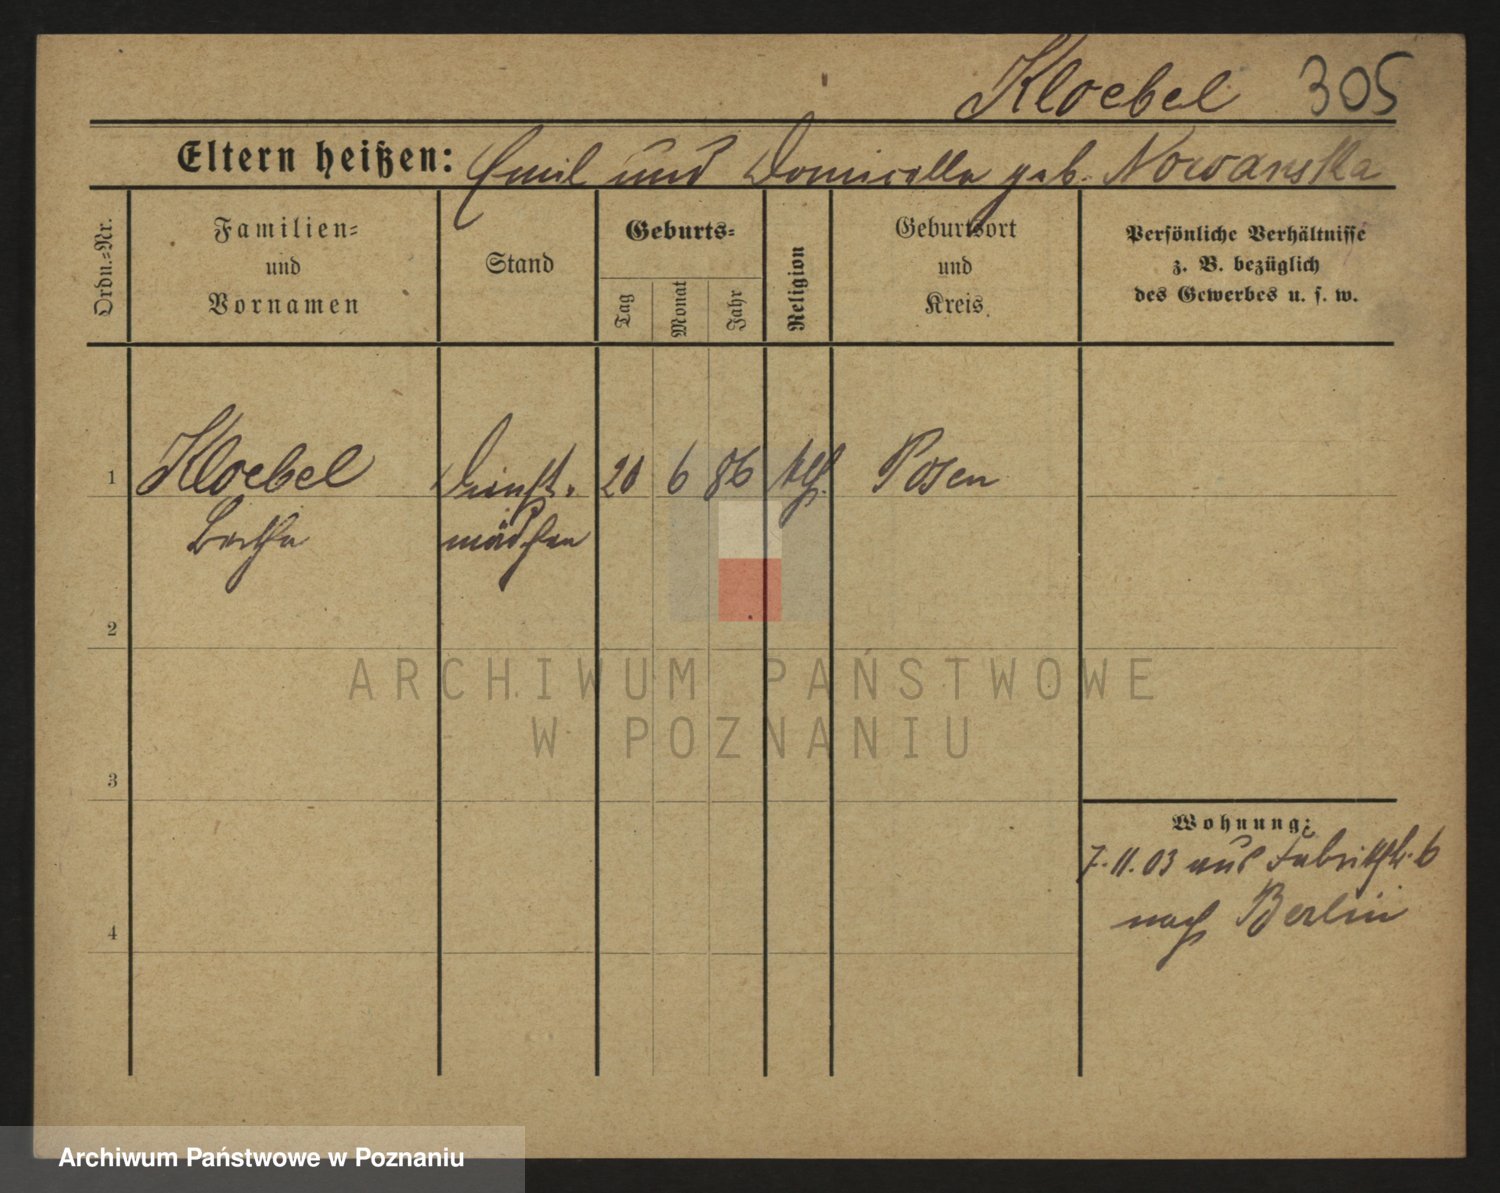 Kloebel 305
Eltern heißen: Emil und Domicella geb. Nowanska
Ordn.=Nr.
Familien=
und
Vornamen
Stand
Geburts=
Tag
Monat
Jahr
Religion
Geburtsort
und
Kreis
Persönliche Verhältnisse
z. B. bezüglich
des Gewerbes u. s. w.
1 Kloebel Dienst- 20 6 86 ktlh. Posen
Bertha mädchen
2
3
Wohnung:
7.11.03 aus Fabrikstr. 6
nach Berlin
4
ARCHIWUM PAŃSTWOWE
W POZNANIU
Archiwum Państwowe w Poznaniu